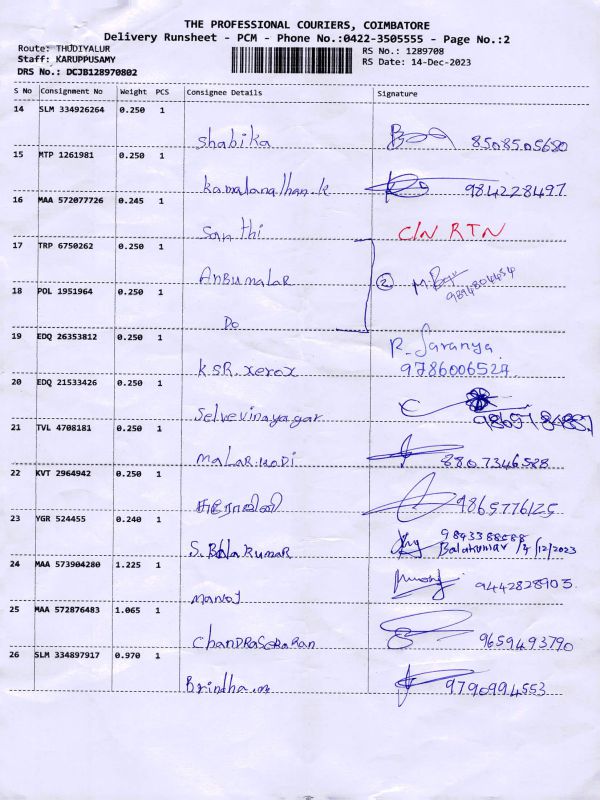 THE PROFESSIONAL COURIERS, COIMBATORE
Delivery Runsheet - PCM - Phone No.:0422-3505555 - Page No.:2
Route: THUDIYALUR RS No.: 1289708
Staff: KARUPPUSAMY RS Date: 14-Dec-2023
DRS No.: DCJB128970802
S No Consignment No Weight PCS Consignee Details Signature
14 SLM 334926264 0.250 1
Shabika 8508505680
15 MTP 1261981 0.250 1
Kamalanathan.k 984228497
16 MAA 572077726 0.245 1
Santhi C/N RTN
17 TRP 6750262 0.250 1
ANBUMALAR ② 9894804454
18 POL 1951964 0.250 1
Do
19 EDQ 26353812 0.250 1 R. Saranya
KSR. xerox 9786006527
20 EDQ 21533426 0.250 1
Selvevinayagar
21 TVL 4708181 0.250 1
MALAR.MODI 8807346588
22 KVT 2964942 0.250 1
சரோஜினி 9865776125
23 YGR 524455 0.240 1 9843388588
S. Bala kumar Balakumar /12/2023
24 MAA 573904280 1.225 1
MANOJ 9442828903
25 MAA 572876483 1.065 1
CHANDRASEKARAN 9659493790
26 SLM 334897917 0.970 1
Brindha.m 9790994553